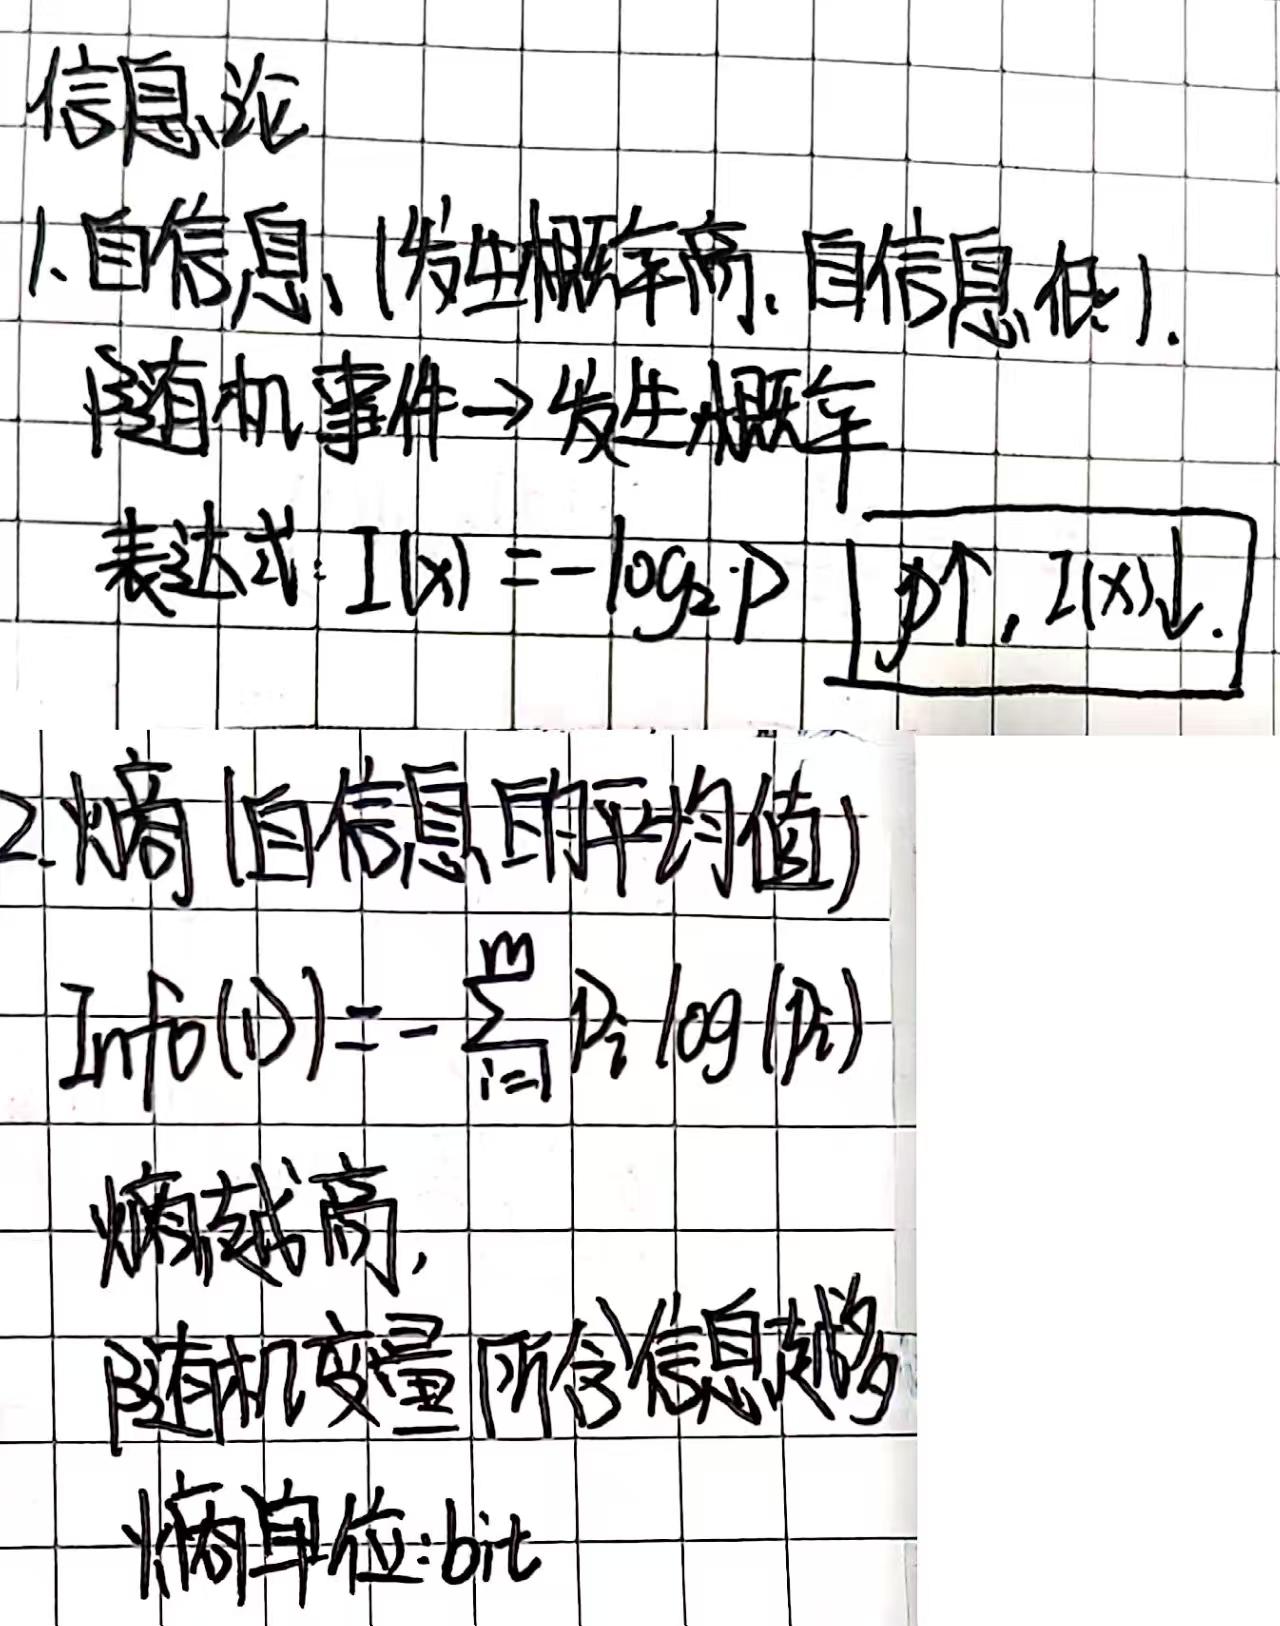 信息论
1. 自信息 (发生概率高, 自信息低).
随机事件→发生概率
表达式: I(x) = -log₂ p p↑, I(x)↓.
2. 熵 (自信息的平均值)
Info(D) = - ∑_{i=1}^{m} pᵢ log(pᵢ)
熵越高,
随机变量所含信息越多
熵单位: bit